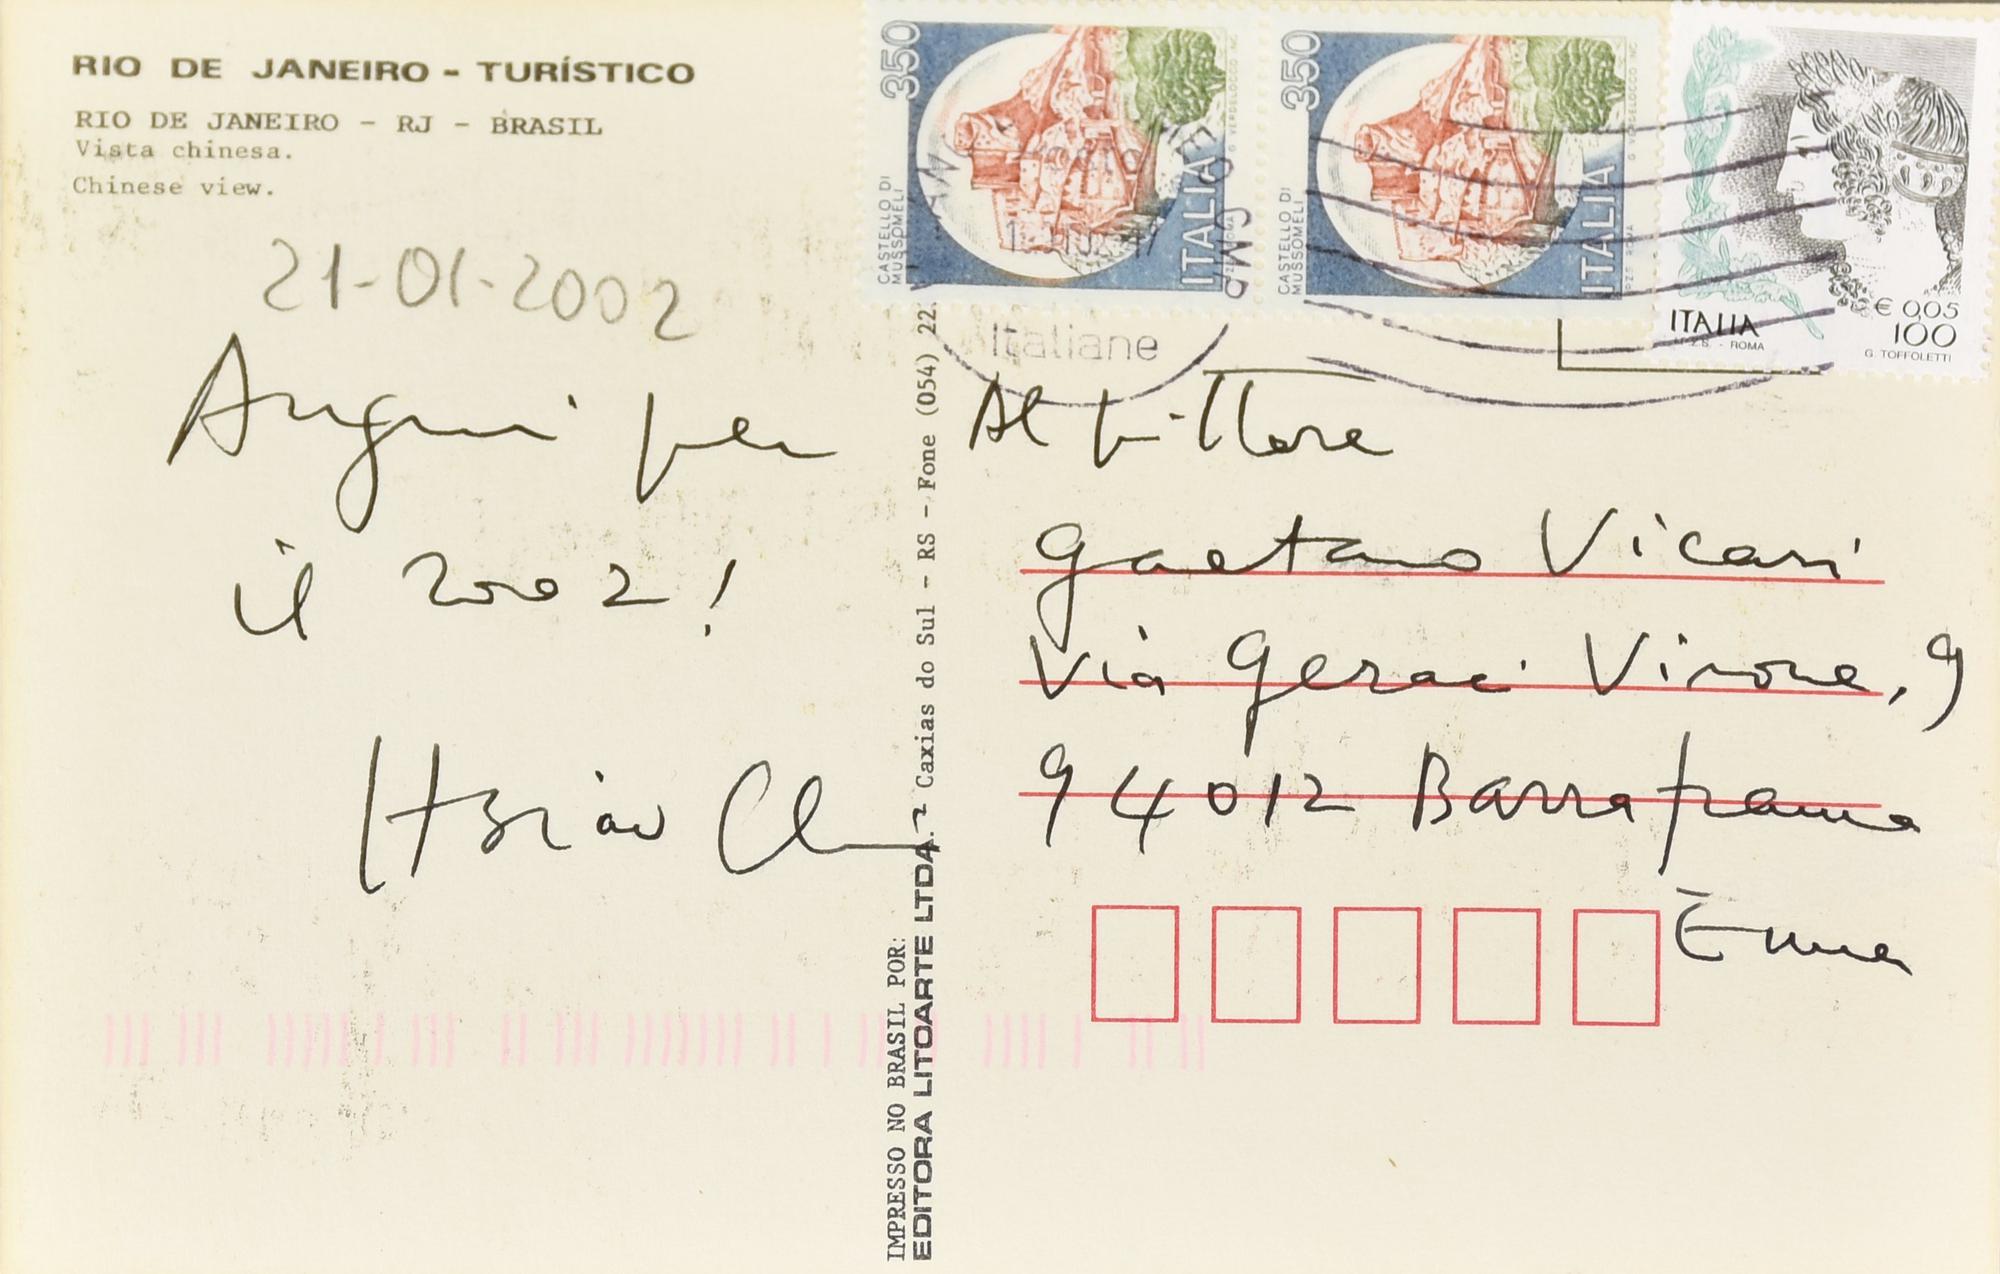 RIO DE JANEIRO - TURÍSTICO
RIO DE JANEIRO - RJ - BRASIL
Vista chinesa.
Chinese view.
21-01-2002
Auguri per
il 2002!
Hsiao Chin
IMPRESSO NO BRASIL POR:
EDITORA LITOARTE LTDA. Caxias do Sul - RS - Fone (054) 22.
350
CASTELLO DI
MUSSOMELI
ITALIA
G. VERDELOCCO INC.
350
CASTELLO DI
MUSSOMELI
ITALIA
G. VERDELOCCO INC.
I.P.Z.S. ROMA
ITALIA
€ 0,05
100
I.P.Z.S. - ROMA
G. TOFFOLETTI
Poste
Italiane
Al pittore
Gaetano Vicari
Via Geraci Virone, 9
94012 Barrafranca
Enna